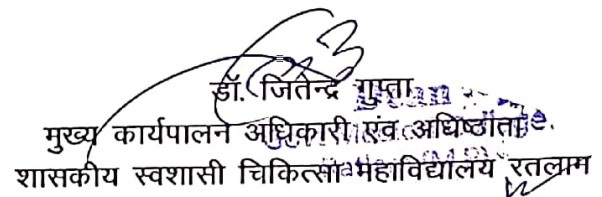 डॉ. जितेन्द्र गुप्ता
मुख्य कार्यपालन अधिकारी एंव अधिष्ठाता
शासकीय स्वशासी चिकित्सा महाविद्यालय रतलाम